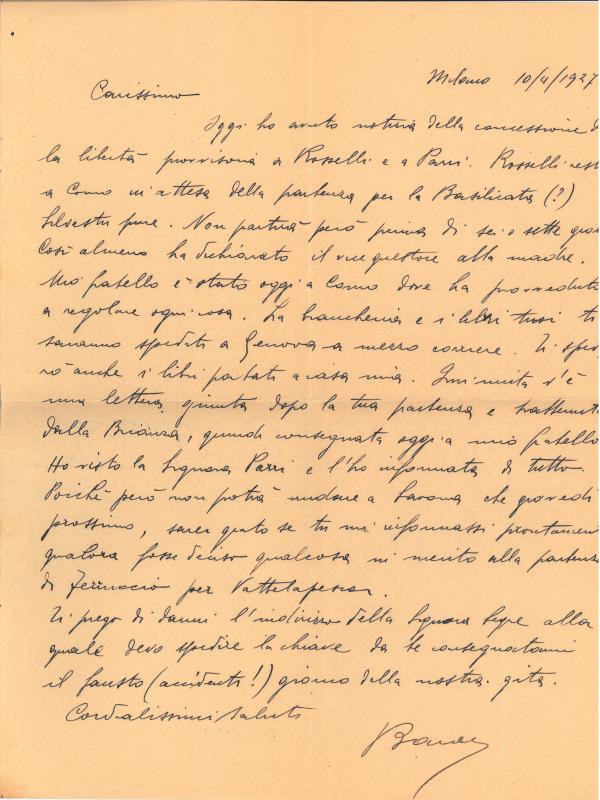 Milano 10/4/1927
Carissimo
Oggi ho avuto notizia della concessione d
la libertà provvisoria a Rosselli e a Parri. Rosselli rest
a Como in attesa della partenza per la Basilicata (?)
Silvestri pure. Non partirà però prima di sei o sette gior
Così almeno ha dichiarato il vice questore alla madre.
Mio fratello è stato oggi a Como dove ha provveduto
a regolare ogni cosa. La biancheria e i libri tuoi ti
saranno spediti a Genova a mezzo corriere. Ti spedi
rò anche i libri portati a casa mia. Inoltre v'è
una lettera giunta dopo la tua partenza e trattenuta
dalla Brianza, quindi consegnata oggi a mio fratello
Ho visto la Signora Parri e l'ho informata di tutto.
Poichè però non potrà andare a Savona che giovedì
prossimo, sarei grato se tu mi informassi prontamen
qualora fosse deciso qualcosa in merito alla partenza
di Ferruccio per Vattelapesca.
Ti prego di darmi l'indirizzo della Signora Segre alla
quale devo spedire la chiave da te consegnatami
il fausto (accidenti!) giorno della nostra gita.
Cordialissimi saluti